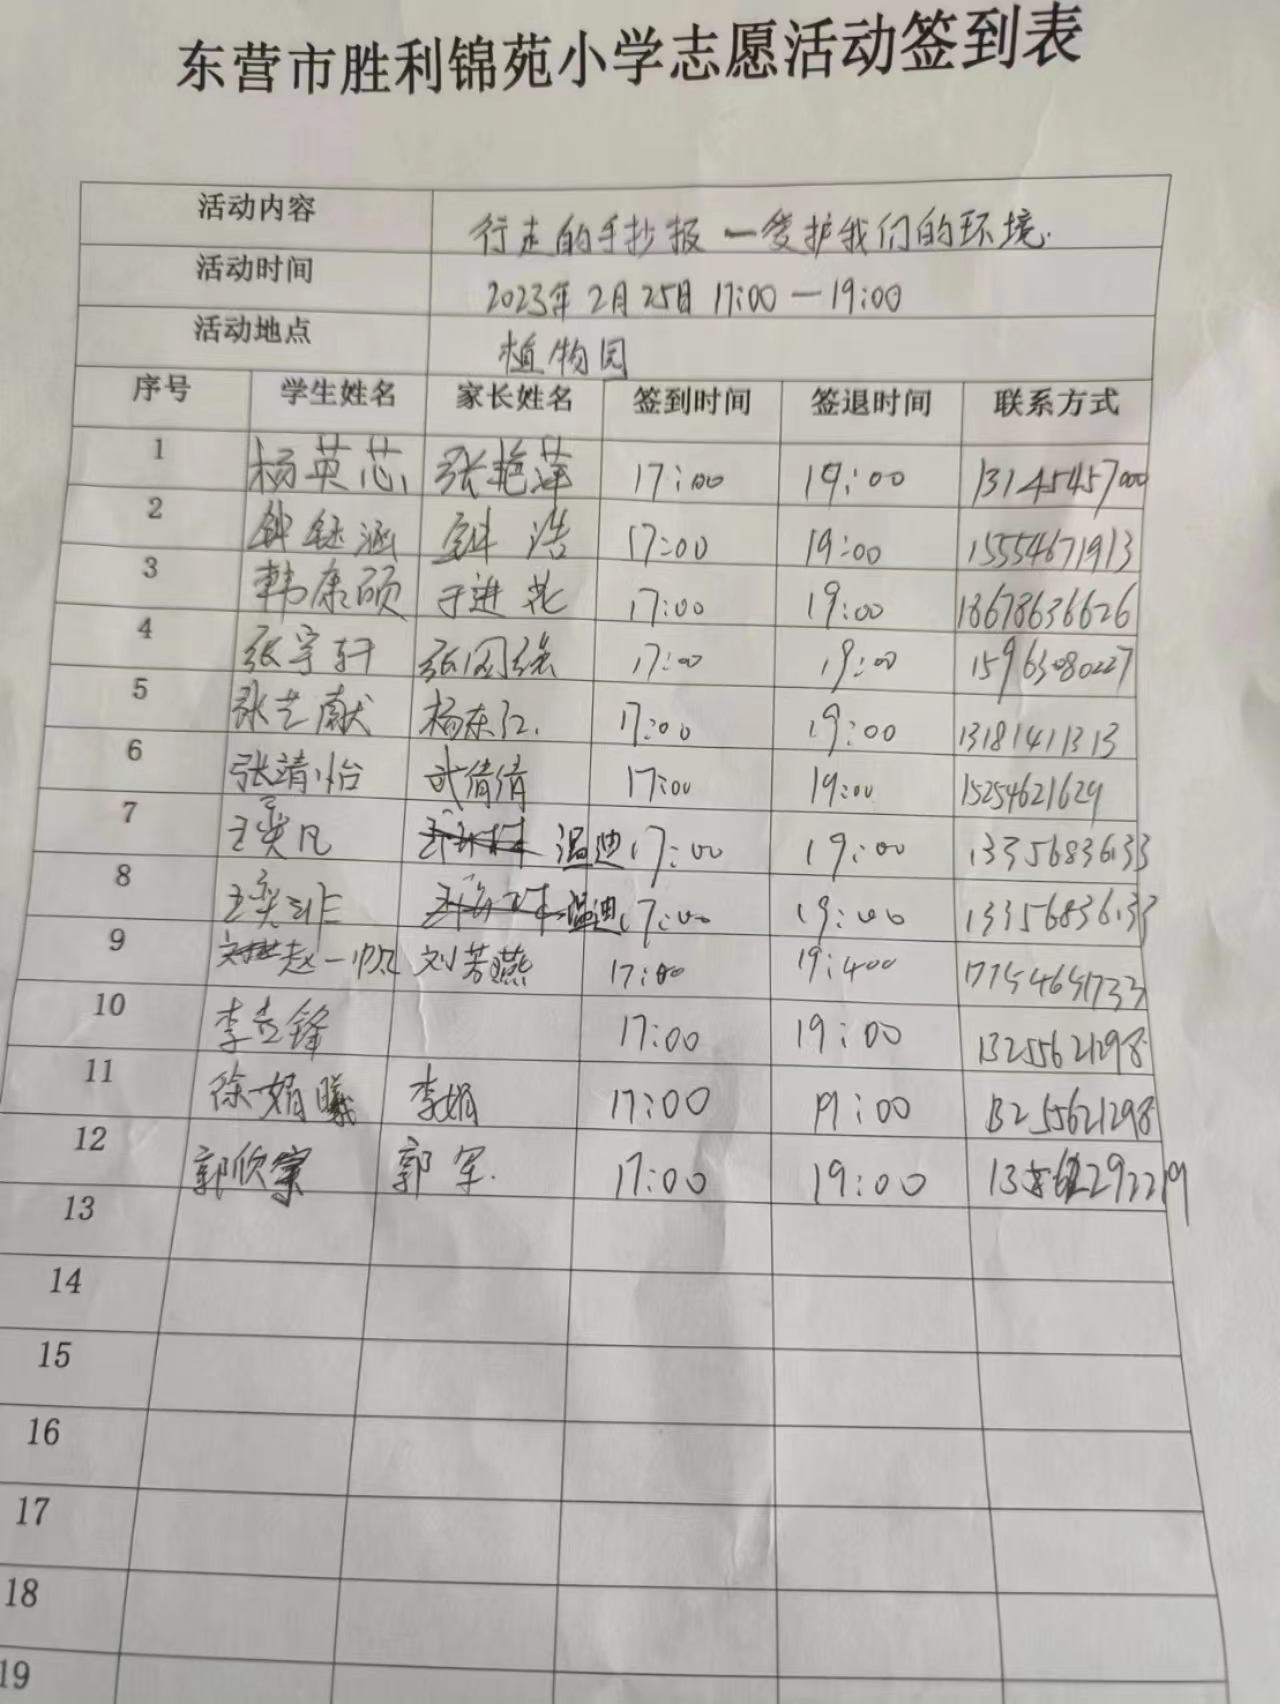 东营市胜利锦苑小学志愿活动签到表
活动内容 行走的手抄报 一爱护我们的环境.
活动时间 2023年2月25日 17:00 — 19:00
活动地点 植物园
序号 学生姓名 家长姓名 签到时间 签退时间 联系方式
1 杨英芯 张艳萍 17:00 19:00 13145457000
2 钟钰涵 钟浩 17:00 19:00 15554671913
3 韩康硕 于进花 17:00 19:00 18678636626
4 张宇轩 张国强 17:00 19:00 15963080227
5 张艺献 杨东红. 17:00 19:00 13181411313
6 张清怡 武倩倩 17:00 19:00 15254621629
7 王奕凡 温迪 17:00 19:00 13356836133
8 王奕非 温迪 17:00 19:00 13356836133
9 赵一帆 刘芳燕 17:00 19:00 17754651733
10 李立锋 17:00 19:00 13255621298
11 徐婧曦 李娟 17:00 19:00 13255621298
12 郭欣 郭军. 17:00 19:00
13
14
15
16
17
18
19